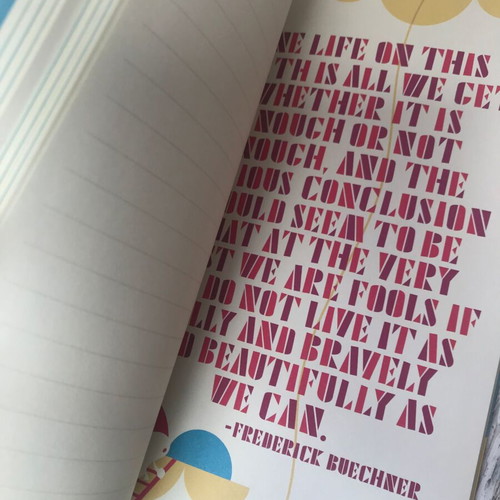 NE LIFE ON THIS
TH IS ALL WE GET
WHETHER IT IS
NOUGH OR NOT
NOUGH, AND THE
IOUS CONCLUSION
OULD SEEM TO BE
AT AT THE VERY
T WE ARE FOOLS IF
DO NOT LIVE IT AS
LLY AND BRAVELY
D BEAUTIFULLY AS
WE CAN.
-FREDERICK BUECHNER